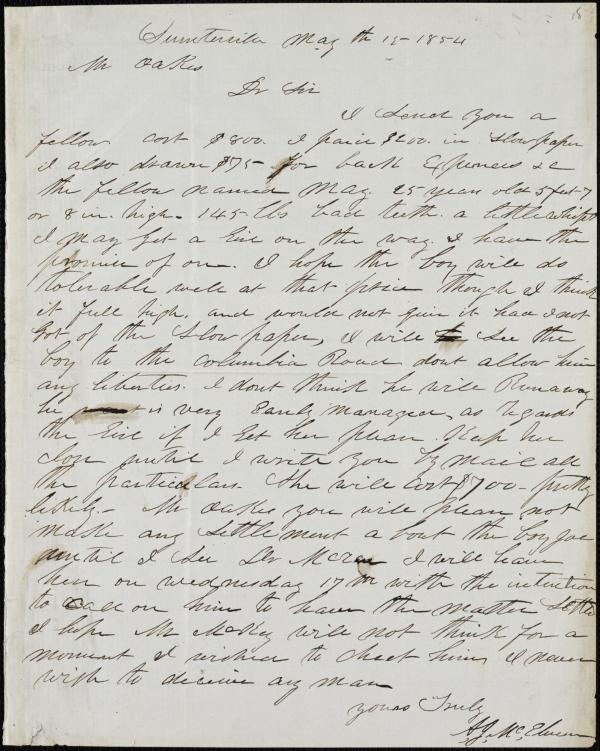 18
Sumterville May th 15 - 1854
Mr Oakes
Dr Sir
I Send you a
fellow cost $800. I paid $200. in Slow paper
I also drawn $75 - for back Expences &c
the fellow named May. 25 years old 5 feet 7
or 8 in. high. 145 lbs bad teeth. a little whipt
I may Get a Girl on the way. I have the
promise of one. I hope the boy will do
tolerable well at that price though I think
it full high. and would not give it had I not
Got of the Slow paper, I will See the
boy to the Columbia Road dont allow him
any liberties. I dont think he will Runaway
he is very Easily managed, as Regards
the Girl if I Get her please Keep her
Close until I write you by mail all
the particulars. She will Cost $700 - pretty
likely. - Mr Oakes you will please not
make any Settlement a bout the boy Joe
until I See Dr McRea I will leave
here on wednesday 17th with the intention
to Call on him to have the matter Settled
I hope Mr McKey will not think for a
moment I wished to cheat him, I never
wish to deceive any man
yours Truly
A J McElveen